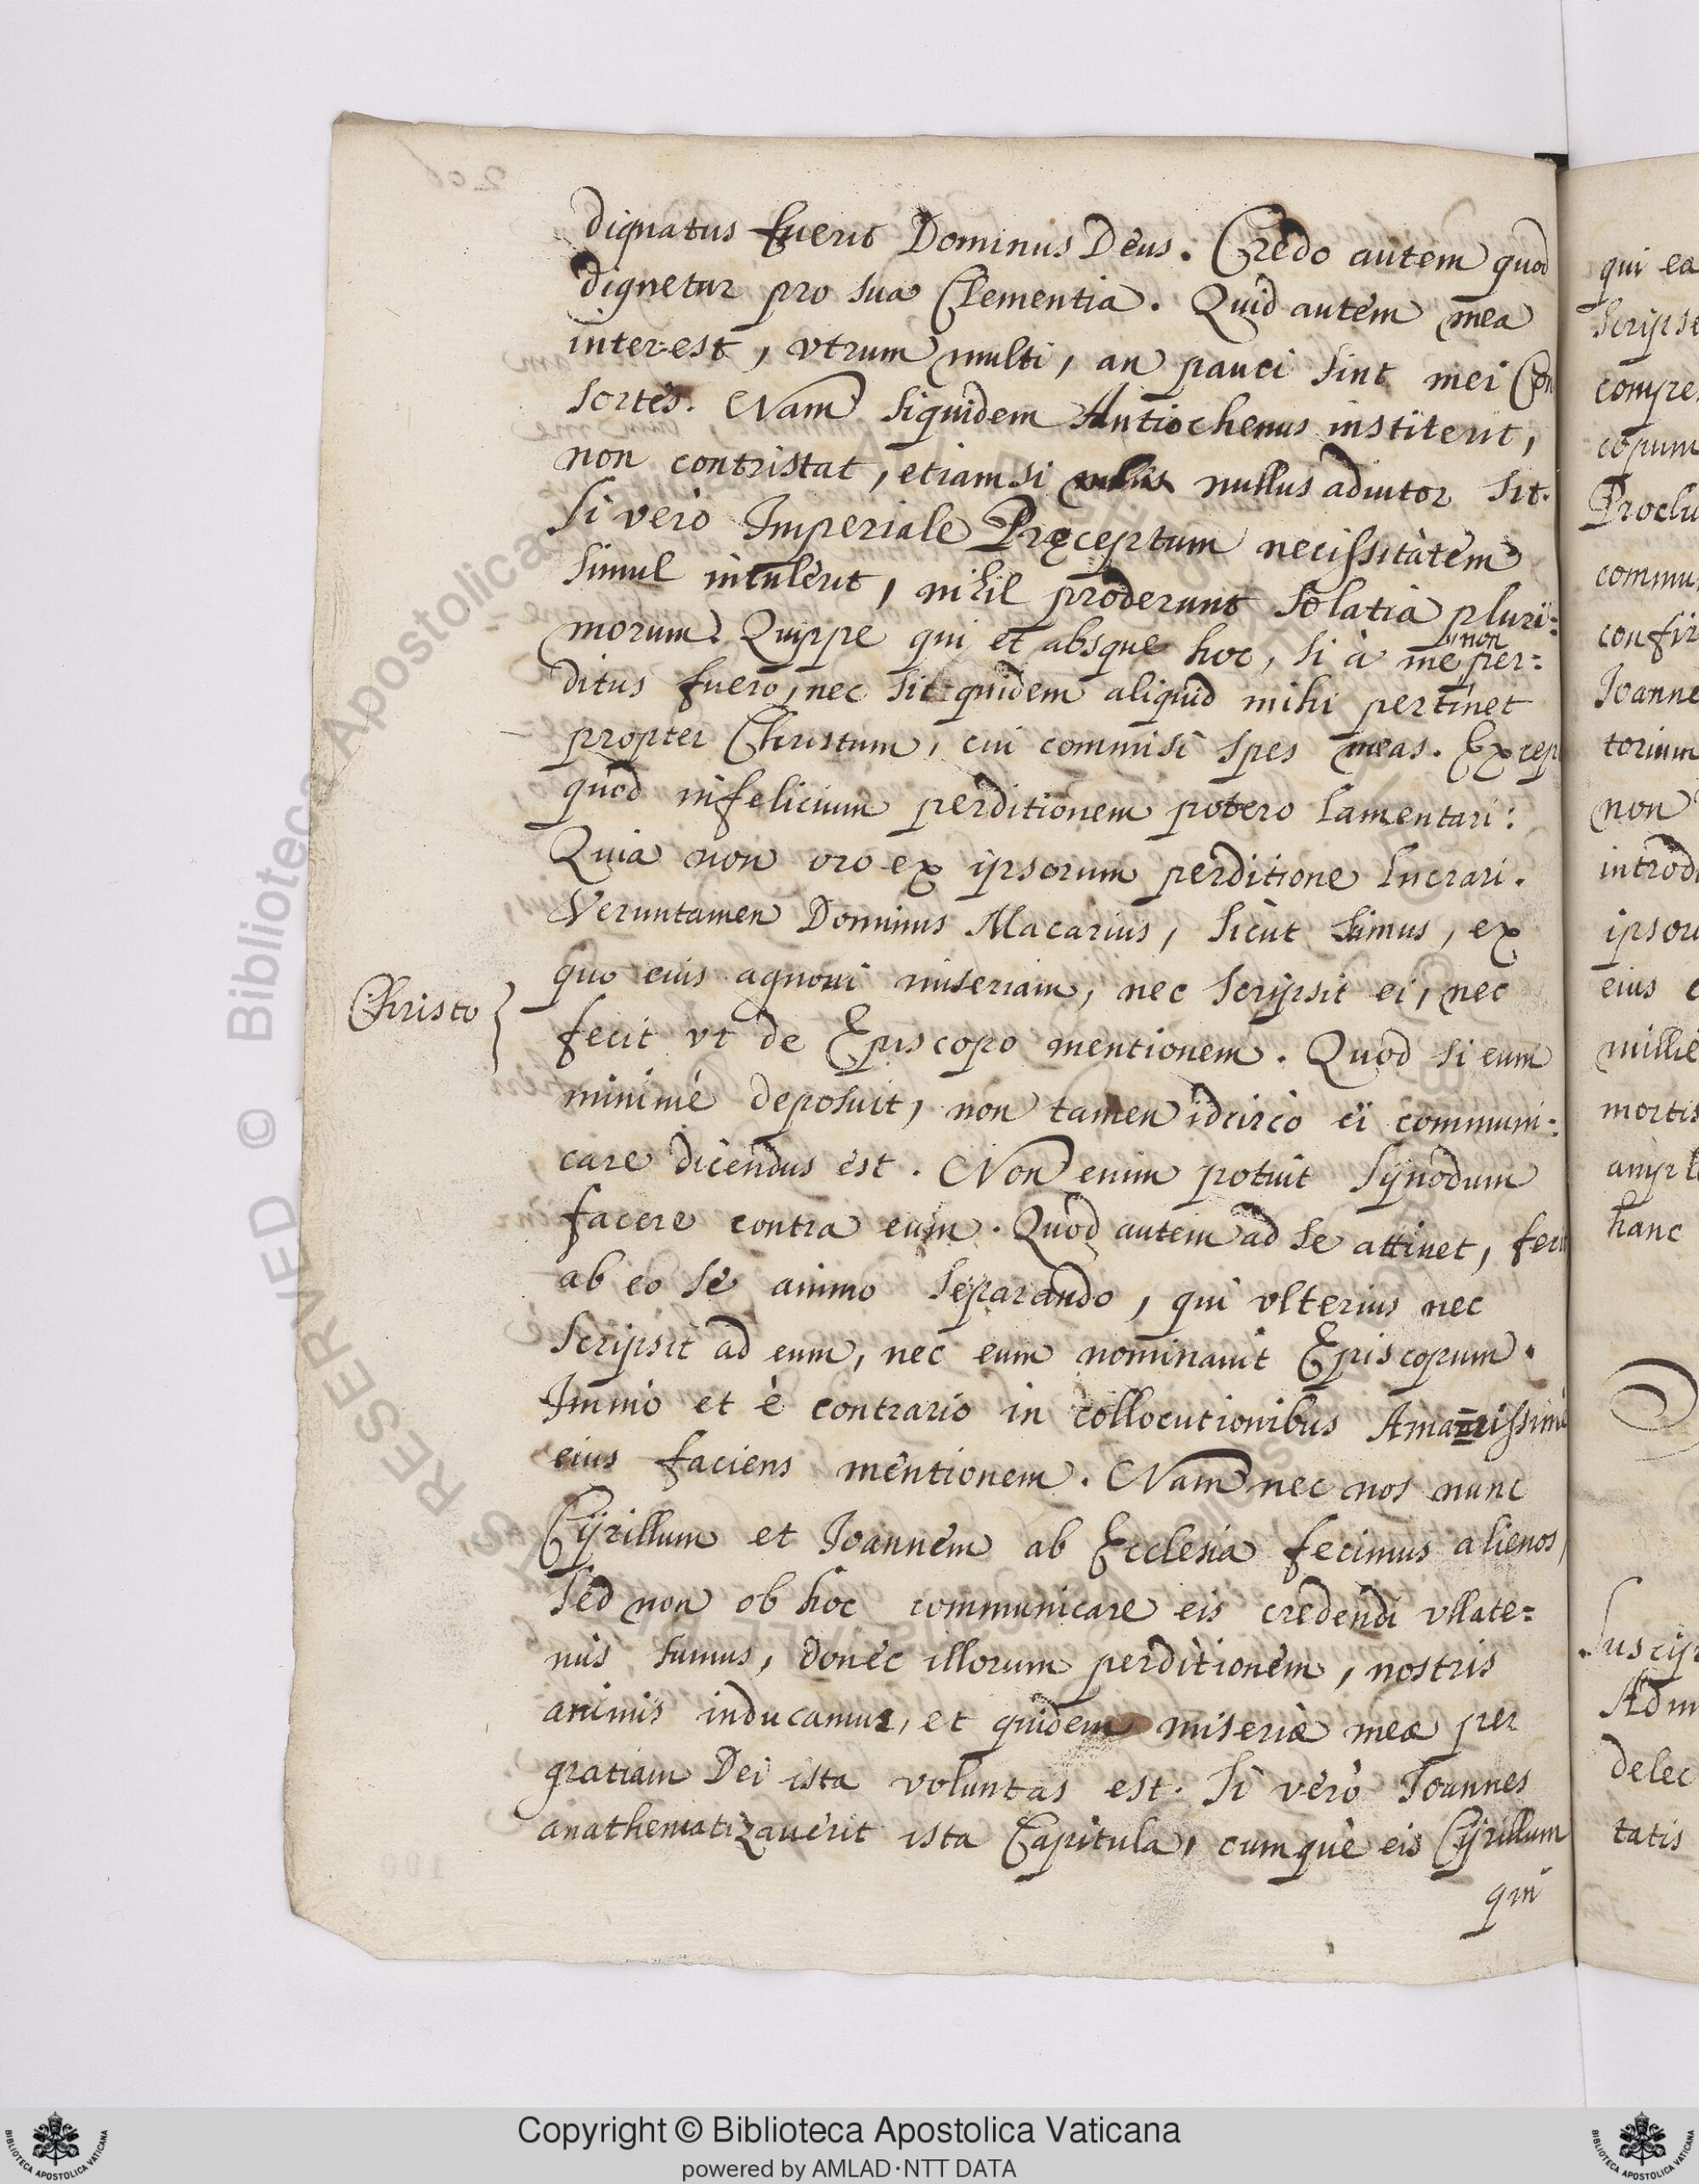 dignatus fuerit Dominus Deus. Credo autem quod
dignetur pro sua Clementia. Quid autem mea
interest, vtrum multi, an pauci sint mei Con
sortes. Nam siquidem Antiochenus institerit,
non contristat, etiamsi nullus adiutor sit.
Si verò Imperiale Pręceptum necissitatem
simul intulerit, nihil proderunt solatia pluri:
morum. Quippe qui et absque hoc, si à me non per:
ditus fuero, nec sic quidem aliquid mihi pertinet
propter Christum, cui commisi spes meas. Excep
quod infelicium perditionem potero lamentari:
Quia non oro ex ipsorum perditione lucrari.
Veruntamen Dominus Macarius, sicut simus, ex
quo eius agnoui miseriam, nec scripsit ei, nec
Christo}
fecit vt de Episcopo mentionem. Quod si eum
minimè deposuit, non tamen idcirco ei communi:
care dicendus est. Non enim potuit Sÿnodum
facere contra eum. Quod autem ad se attinet, fecit
ab eo se animo separando, qui vlterius nec
scripsit ad eum, nec eum nominauit Episcopum.
Immò et è contrario in collocutionibus Amarissimè
eius faciens mentionem. Nam nec nos nunc
Cÿrillum et Ioannem ab Ecclesia fecimus alienos,
sed non ob hoc communicare eis credendi vllate:
nus sumus, donec illorum perditionem, nostris
animis inducamur, et quidem miseriæ meæ per
gratiam Dei ista voluntas est. Si verò Ioannes
anathematizauerit ista Capitula, cumque eis Cÿrillum
qui
qui ea
scripse
compre
copum
Proclu
commu
confir
Ioanne
torium
non
introd
ipsoru
eius
millie
mortis
ampli
hanc
Suscip
Adm
delec
tatis
Copyright © Biblioteca Apostolica Vaticana
powered by AMLAD·NTT DATA